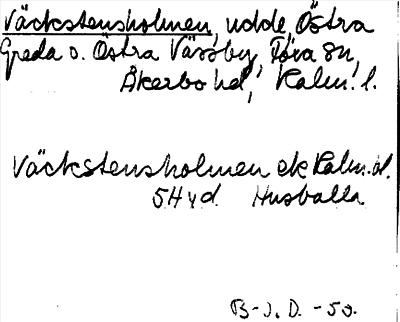 Väckstensholmen, udde, Östra
Greda o. Östra Vässby, Föra sn,
Åkerbo hd, Kalm. l.
Väckstensholmen ek Kalm. öl.
5H yd Husballa
B-J. D. -50.